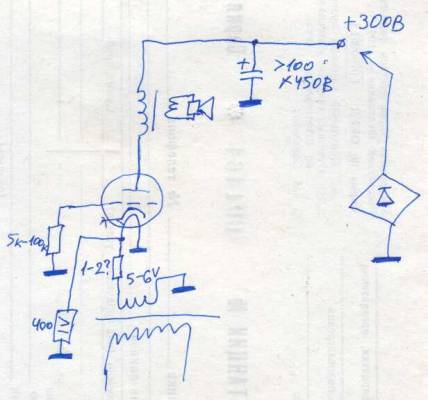 +300В
+
>100
×450В
5к-100к
1-2?
5-6V
400